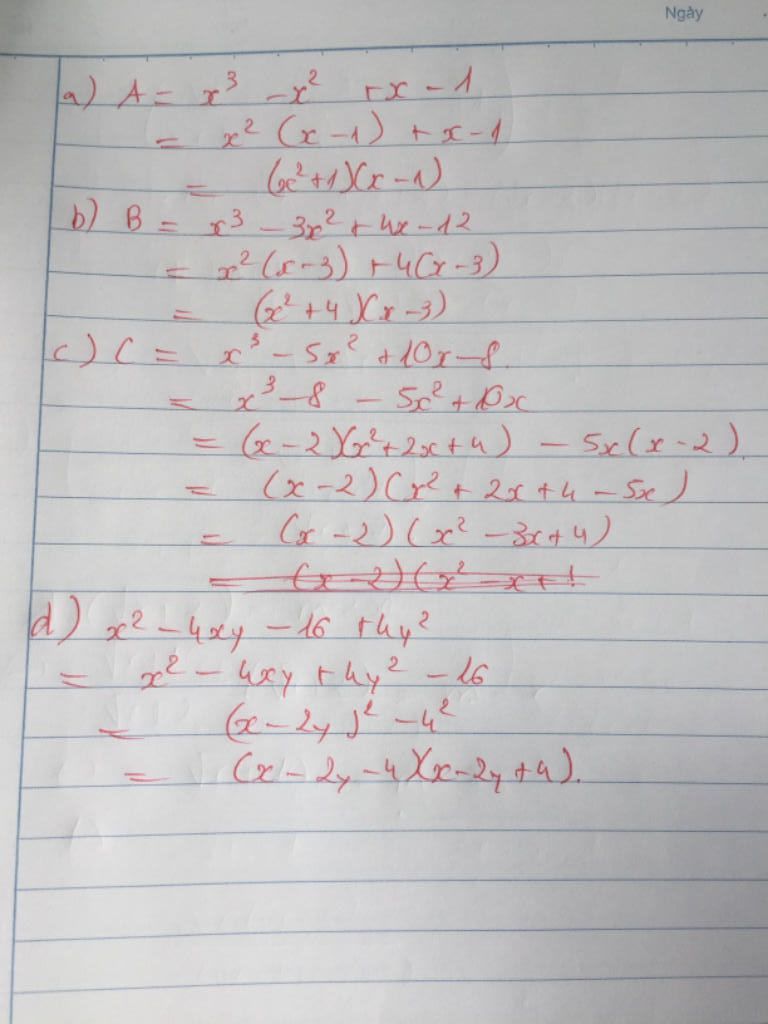 Ngày
a) A = x³ - x² + x - 1
= x² (x - 1) + x - 1
= (x² + 1)(x - 1)
b) B = x³ - 3x² + 4x - 12
= x² (x - 3) + 4(x - 3)
= (x² + 4)(x - 3)
c) C = x³ - 5x² + 10x - 8.
= x³ - 8 - 5x² + 10x
= (x - 2)(x² + 2x + 4) - 5x(x - 2).
= (x - 2)(x² + 2x + 4 - 5x)
= (x - 2)(x² - 3x + 4)
= (x - 2)(x² - x +
d) x² - 4xy - 16 + 4y²
= x² - 4xy + 4y² - 16
= (x - 2y)² - 4²
= (x - 2y - 4)(x - 2y + 4).